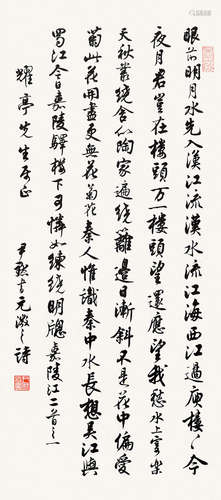 眼前明月水先入漢江流漢水流江海西江過庾樓々今
夜月君豈在樓頭万一樓頭望還應望我愁水上寄樂
天秋叢繞舍似陶家遍繞籬邊日漸斜不是花中偏愛
菊此花開盡更無花菊花秦人惟識秦中水長想吳江與
蜀江今日嘉陵驛樓下可憐如練繞明牕嘉陵江二首之一
耀亭先生正
尹默書元微之詩